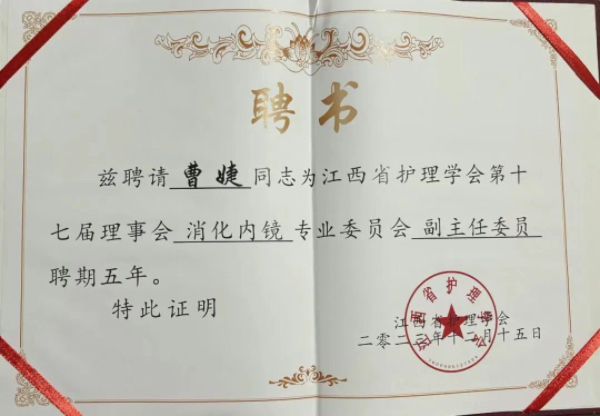 聘书
兹聘请 曹婕 同志为江西省护理学会第十
七届理事会 消化内镜 专业委员会 副主任委员
聘期五年。
特此证明
江西省护理学会
二零二三年十二月十五日
江西省护理学会